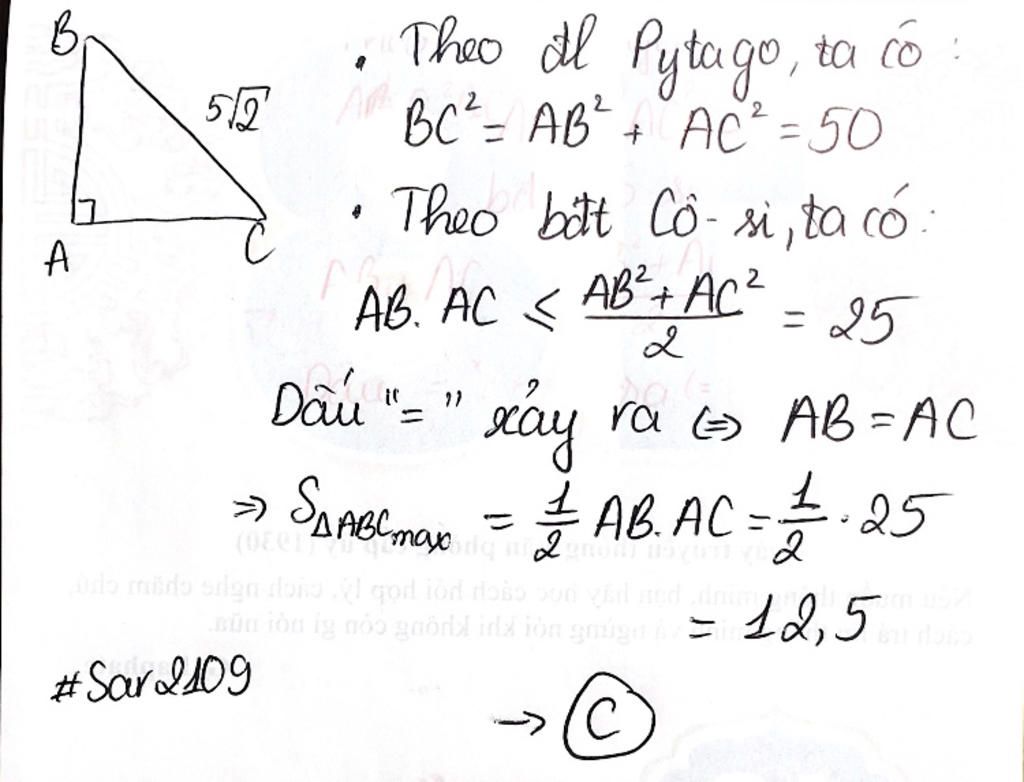 B
5√2
A
C
. Theo đl Pytago, ta có :
BC² = AB² + AC² = 50
. Theo bđt Cô-si, ta có :
AB. AC ≤ (AB² + AC²)/2 = 25
Dấu "=" xảy ra ⇔ AB = AC
⇒ SΔABCmax = 1/2 AB. AC = 1/2 . 25
= 12,5
#Sar2109
→ C